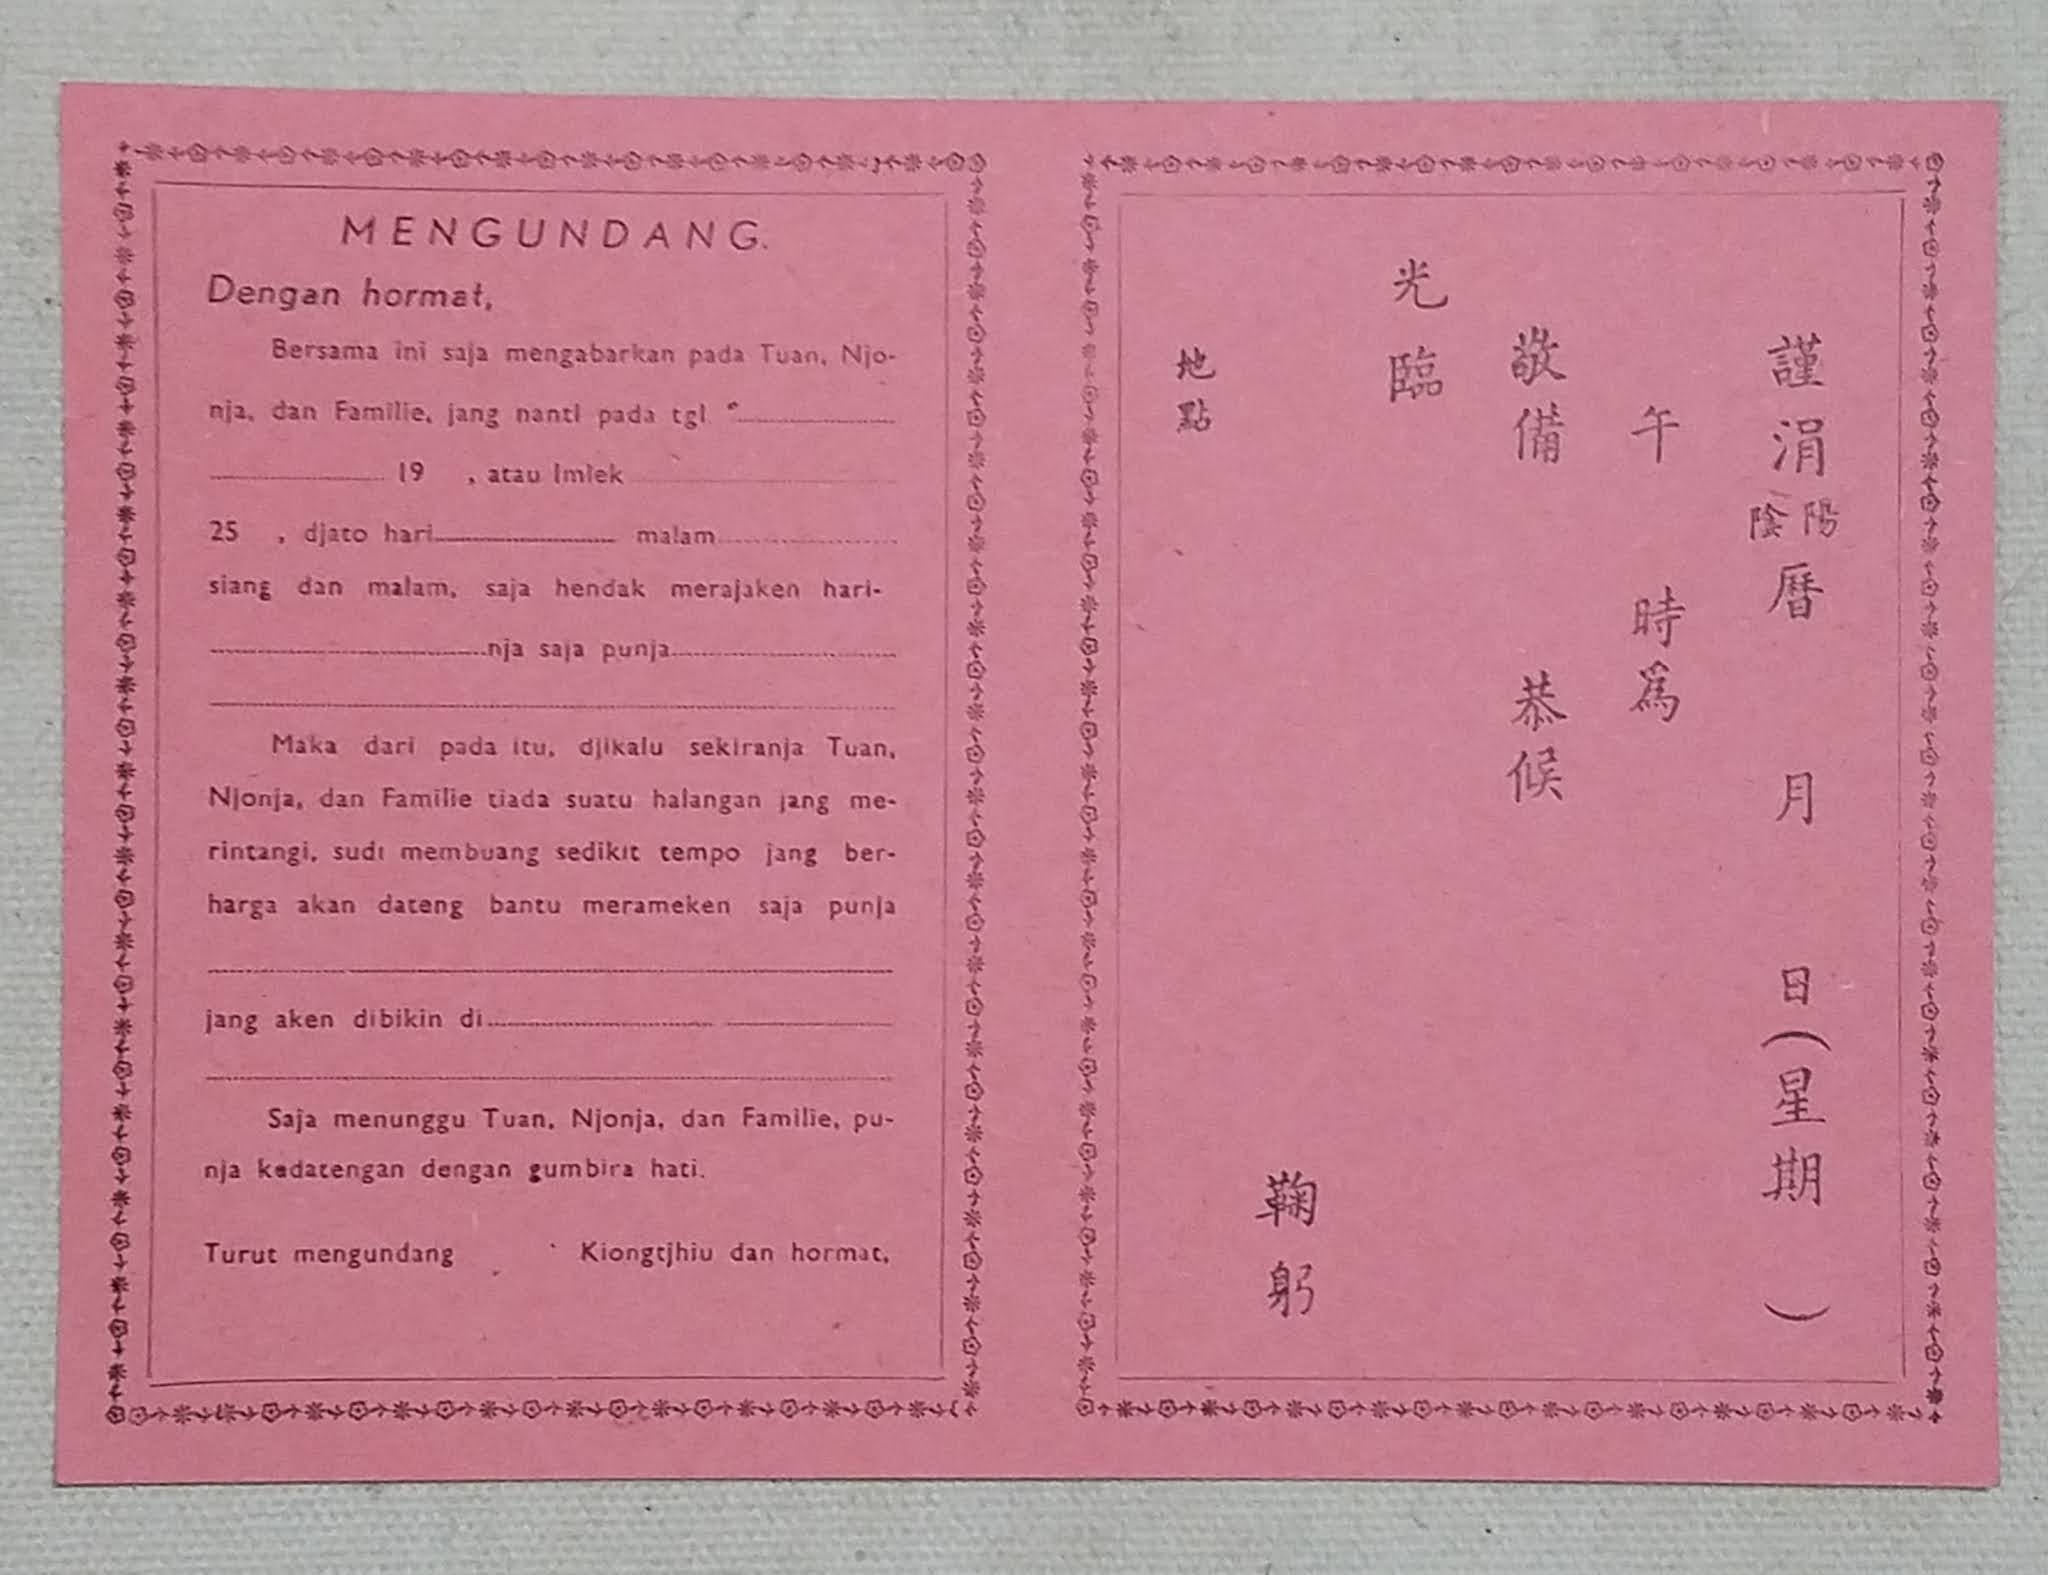 MENGUNDANG.
Dengan hormat,
Bersama ini saja mengabarkan pada Tuan, Njo-
nja, dan Familie, jang nanti pada tgl.
19 , atau Imlek
25 , djato hari malam
siang dan malam, saja hendak merajaken hari-
nja saja punja
Maka dari pada itu, djikalu sekiranja Tuan,
Njonja, dan Familie tiada suatu halangan jang me-
rintangi, sudi membuang sedikit tempo jang ber-
harga akan dateng bantu merameken saja punja
jang aken dibikin di
Saja menunggu Tuan, Njonja, dan Familie, pu-
nja kedatengan dengan gumbira hati.
Turut mengundang Kiongtjhiu dan hormat,
謹涓陽陰曆 月 日(星期 )
午 時爲
敬備 恭候
光臨
鞠躬
地點